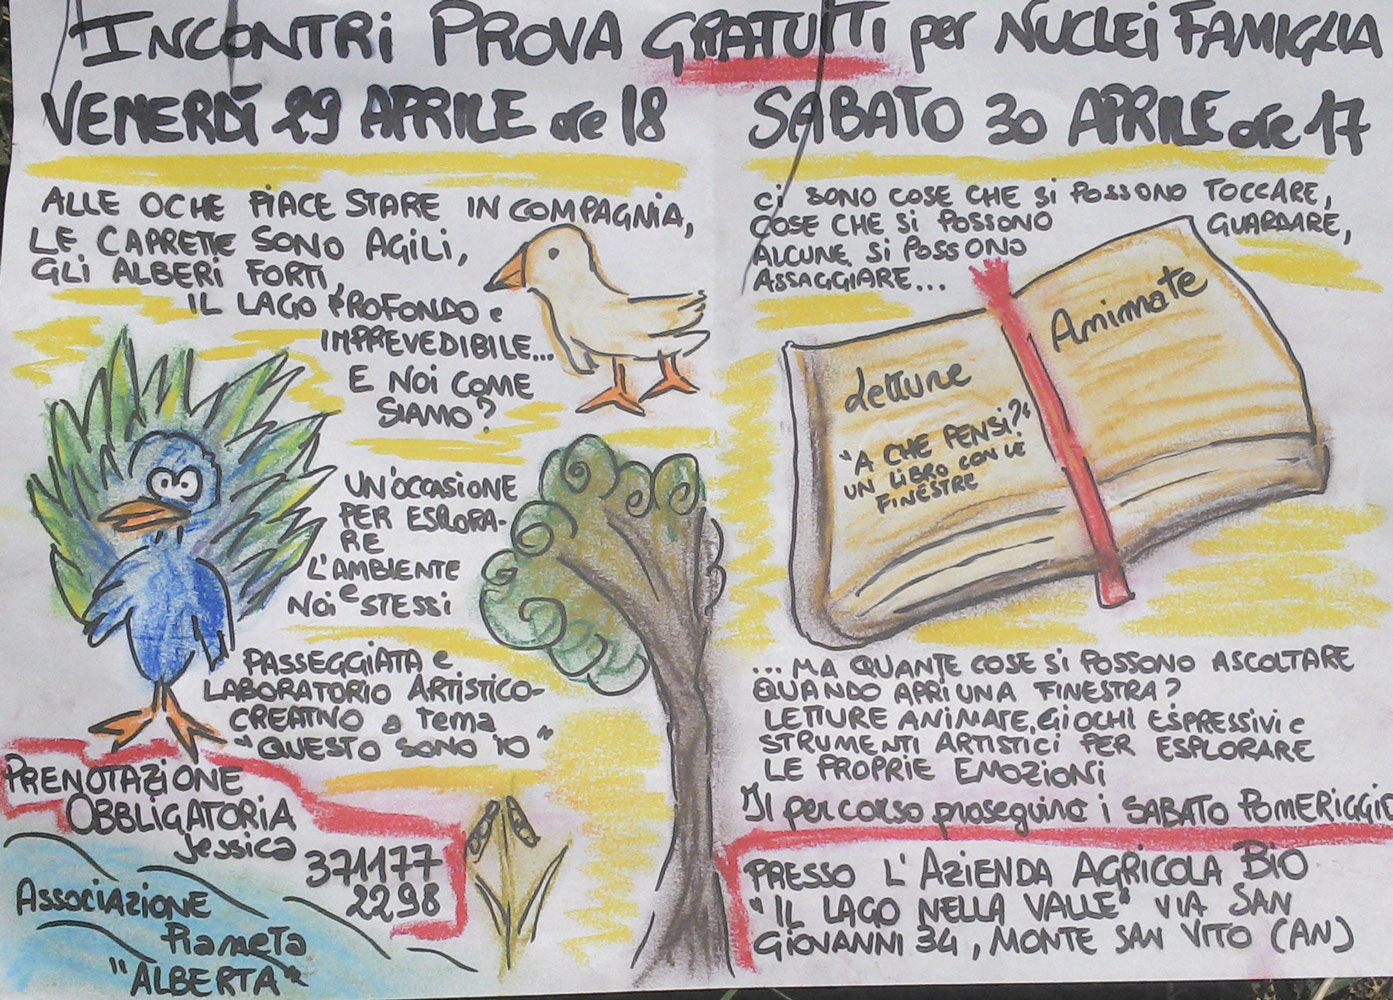 INCONTRI PROVA GRATUITI per NUCLEI FAMIGLIA
VENERDÌ 29 APRILE ore 18
ALLE OCHE PIACE STARE IN COMPAGNIA,
LE CAPRETTE SONO AGILI,
GLI ALBERI FORTI
IL LAGO PROFONDO e
IMPREVEDIBILE...
E NOI COME
SIAMO?
UN'OCCASIONE
PER ESPLORA-
RE
L'AMBIENTE
e
NOI STESSI
PASSEGGIATA e
LABORATORIO ARTISTICO-
CREATIVO a tema
"QUESTO SONO IO"
PRENOTAZIONE
OBBLIGATORIA
Jessica
371177
2298
ASSOCIAZIONE
Pianeta
"ALBERTA"
SABATO 30 APRILE ore 17
CI SONO COSE CHE SI POSSONO TOCCARE,
COSE CHE SI POSSONO GUARDARE,
ALCUNE SI POSSONO
ASSAGGIARE...
Letture
Animate
"A CHE PENSI?"
UN LIBRO CON LE
FINESTRE
...MA QUANTE COSE SI POSSONO ASCOLTARE
QUANDO APRI UNA FINESTRA?
LETTURE ANIMATE, GIOCHI ESPRESSIVI e
STRUMENTI ARTISTICI PER ESPLORARE
LE PROPRIE EMOZIONI
Il percorso proseguirà i SABATO POMERIGGIO
PRESSO L'AZIENDA AGRICOLA BIO
"IL LAGO NELLA VALLE" VIA SAN
GIOVANNI 34, MONTE SAN VITO (AN)